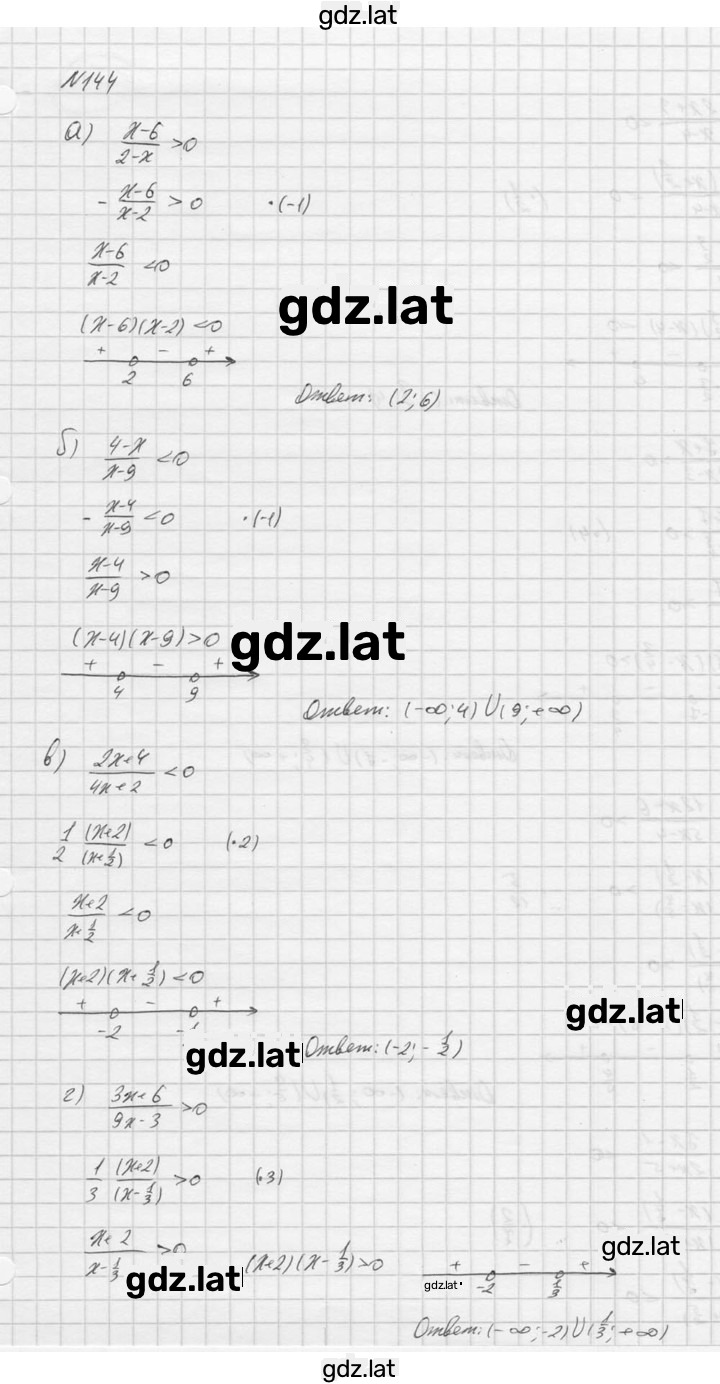 gdz.lat
N144
а) (x-6)/(2-x) >0
- (x-6)/(x-2) > 0 ·(-1)
(x-6)/(x-2) <0
gdz.lat
(x-6)(x-2)<0
+ - +
2 6
Ответ: (2; 6)
б) (4-x)/(x-9) <0
- (x-4)/(x-9) <0 ·(-1)
(x-4)/(x-9) >0
(x-4)(x-9)>0 gdz.lat
+ - +
4 9
Ответ: (-∞; 4) U (9; +∞)
в) (2x+4)/(4x+2) <0
1/2 (x+2)/(x+1/2) <0 (·2)
(x+2)/(x+1/2) <0
(x+2)(x+1/2)<0
+ - +
gdz.lat
-2 -1
gdz.lat Ответ: (-2; -1/2)
г) (3x+6)/(9x-3) >0
1/3 (x+2)/(x-1/3) >0 (·3)
(x+2)/(x-1/3) >0 (x+2)(x-1/3)>0
gdz.lat
gdz.lat
+ - +
gdz.lat
-2 1/3
Ответ: (-∞; -2) U (1/3; +∞)
gdz.lat